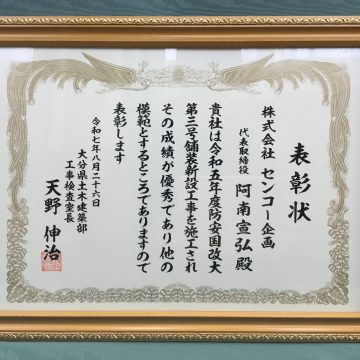 表彰状
株式会社 センコー企画
代表取締役 阿南宣弘殿
貴社は令和五年度防安国改大
第三号舗装新設工事を施工され
その成績が優秀であり他の
模範とするところでありますので
表彰します
令和七年八月二十六日
大分県土木建築部
工事検査室長
天野伸治